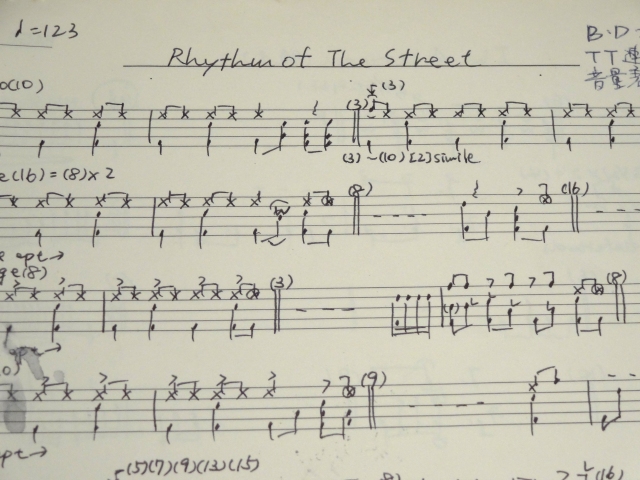 ♩=123
Rhythm of The Street
B.D
TT連
音量
o(10)
(3)
(3)
(3)~(10)[2]simile
e(16)=(8)×2
(8)
(16)
opt→
ge(8)
(3)
(8)
pt→
(9)
opt→
(5)(7)(9)(13)(15)
(8)
(16)